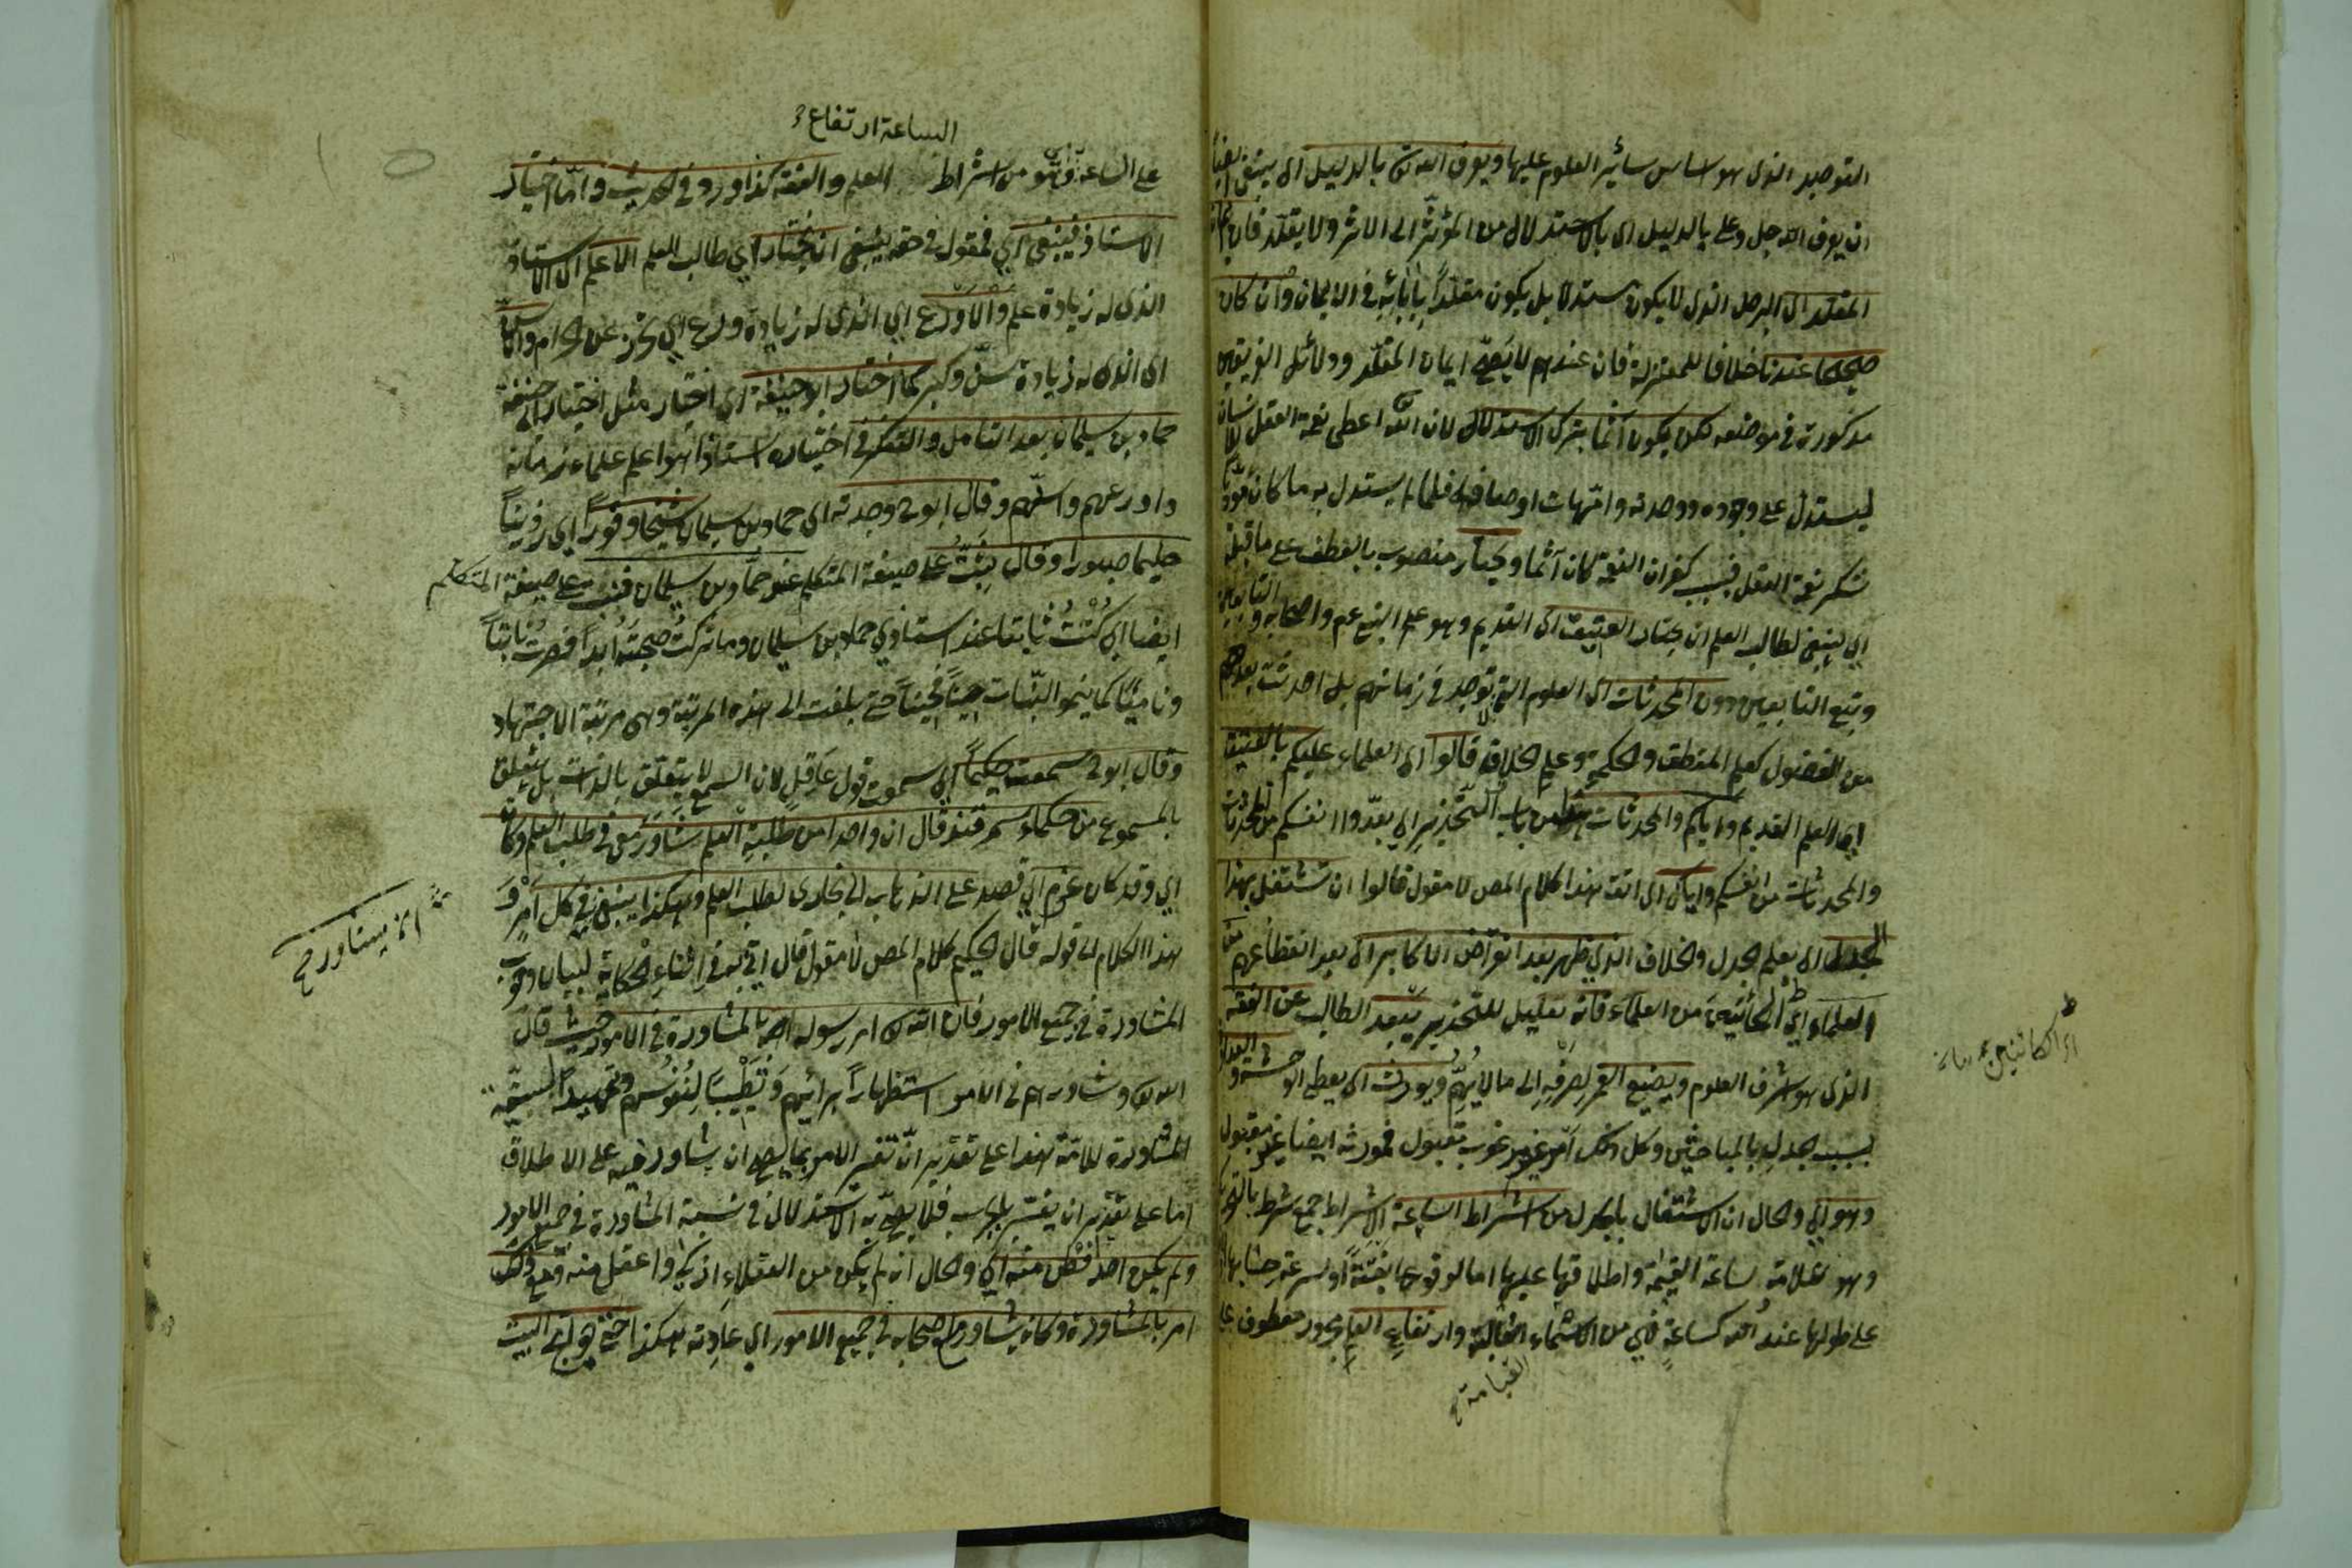 التوحيد الذى هو اساس سائر العلوم عليها ويعرف الله تع بالدليل اى ينبغى ايضا
ان يعرف الله جل وعلى بالدليل اى بالاستدلال من المؤثر الى الاثر ولا يقلد فان ايمان
المقلد اى الرجل الذى لا يكون مستدلا بل يكون مقلدًا بآبائه فى الايمان وان كان
صحيحا عندنا خلافا للمعتزلة فان عندهم لا يصح ايمان المقلد ودلائل الفريقين
مذكورة فى موضعه لكن يكون آثما بترك الاستدلال لان الله تع اعطى نعمة العقل للانسان
ليستدل على وجوده ووحدته وامهات اوصافه فلما لم يستدل به ما كان مؤديا
شكر نعمة العقل فبسبب كفران النعمة كان آثما ويختار منصوب بالعطف على ما قبله
اى ينبغى لطالب العلم ان يختار العتيق اى القديم وهو علم النبى عم واصحابه والتابعين
وتبع التابعين دون المحدثات اى العلوم التى لا توجد فى زمانهم بل احدثت بعدهم
من الفضول كعلم المنطق والحكمة وعلم الخلاف قالوا اى العلماء عليكم بالعتيق
اى العلم القديم واياكم والمحدثات من باب التحذير اى بعدوا انفسكم من المحدثات
والمحدثات من انفسكم واياك اى اتق هذا كلام المص لا مقول قالوا ان تشتغل بهذا
الجدل اى بعلم الجدل والخلاف الذى ظهر بعد انقراض الاكابر اى بعد انقطاعهم من
العلماء اى الكائنين من العلماء فانه تعليل للتحذير يبعد الطالب عن الفقه
الذى هو اشرف العلوم ويضيع العمر لصرفه الى ما لا يهم ويورث اى يعطى الوحشة والعداوة
بسبب جدله بالمباحثين وكل ذلك امر غير مرغوب مقبول فمورثه ايضا غير مقبول
وهو اى والحال ان الاشتغال بالجدل من اشراط الساعة الاشراط جمع شرط بالتحريك
وهو علامة لساعة القيمة واطلاقها عليها اما لوقوعها بغتةً او لسرعة حسابها او
على طولها عند الله كساعةٍ فهى من الاسماء الغالبة وارتفاع العلم مجرور معطوف على
القيامة
اى الكائنين
الساعة ارتفاع
على الساعة اى هو من اشراط العلم والفقه كذا ورد فى الحديث واما اختيار
الاستاذ فينبغى اى فمقول فى حقه ينبغى ان يختار اى طالب العلم الاعلم اى الاستاذ
الذى له زيادة علم والاورع اى الذى له زيادة ورع اى تحرز عن الحرام والاسن
اى الذى له زيادة سن وكبر كما اختار ابو حنيفة اى اختيار مثل اختيار ابى حنيفة
حماد بن سليمان بعد التأمل والتفكر فى اختياره استاذا هو اعلم علماء زمانه
واورعهم واسنهم وقال ابو ح وجدته اى حماد بن سليمان شيخا وقورًا اى رزينًا
حليما صبورا وقال ثبتُّ على صيغة المتكلم عند حماد بن سليمان فنبت على صيغة المتكلم
ايضا اى كنت ثابتا عند استاذى حماد بن سليمان وما تركت صحبته ابدا فصرت نابتًا
وناميًا كما ينمو النبات حينًا فحينًا حتى بلغت الى هذه المرتبة وهى مرتبة الاجتهاد
وقال ابو ح سمعت حكيمًا اى سمعت قول عاقل لان السمع لا يتعلق بالذات بل يتعلق
بالمسموع من حكماء سمرقند قال ان واحدا من طلبة العلم شاور معى فى طلب العلم وكان
اى وقد كان عزم اى قصد على الذهاب الى بخارى لطلب العلم وهكذا ينبغى فى كل امر
هذا الكلام الى قوله قال الحكيم كلام المص لا مقول قال اتى به فى اثناء الحكاية لبيان وجوب
المشاورة فى جميع الامور فان الله تع امر رسوله عم بالمشاورة فى الامور حيث قال
الله تع وشاورهم فى الامر استظهارًا برأيهم وتطييبًا لنفوسهم وتمهيدًا لسنة
المشاورة للامة هذا على تقدير ان تفسر الامر بما يصح ان يشاور فيه على الاطلاق
اما على تقدير ان يفسر بالحرب فلا يصح به الاستدلال فى نسبة المشاورة فى جميع الامور
ولم يكن احد افطن منه اى والحال انه لم يكن من العقلاء اذكى واعقل منه ومع ذلك
امر بالمشاورة وكان يشاور اصحابه فى جميع الامور اى عادته هكذا حتى حوائج البيت
ان يشاور